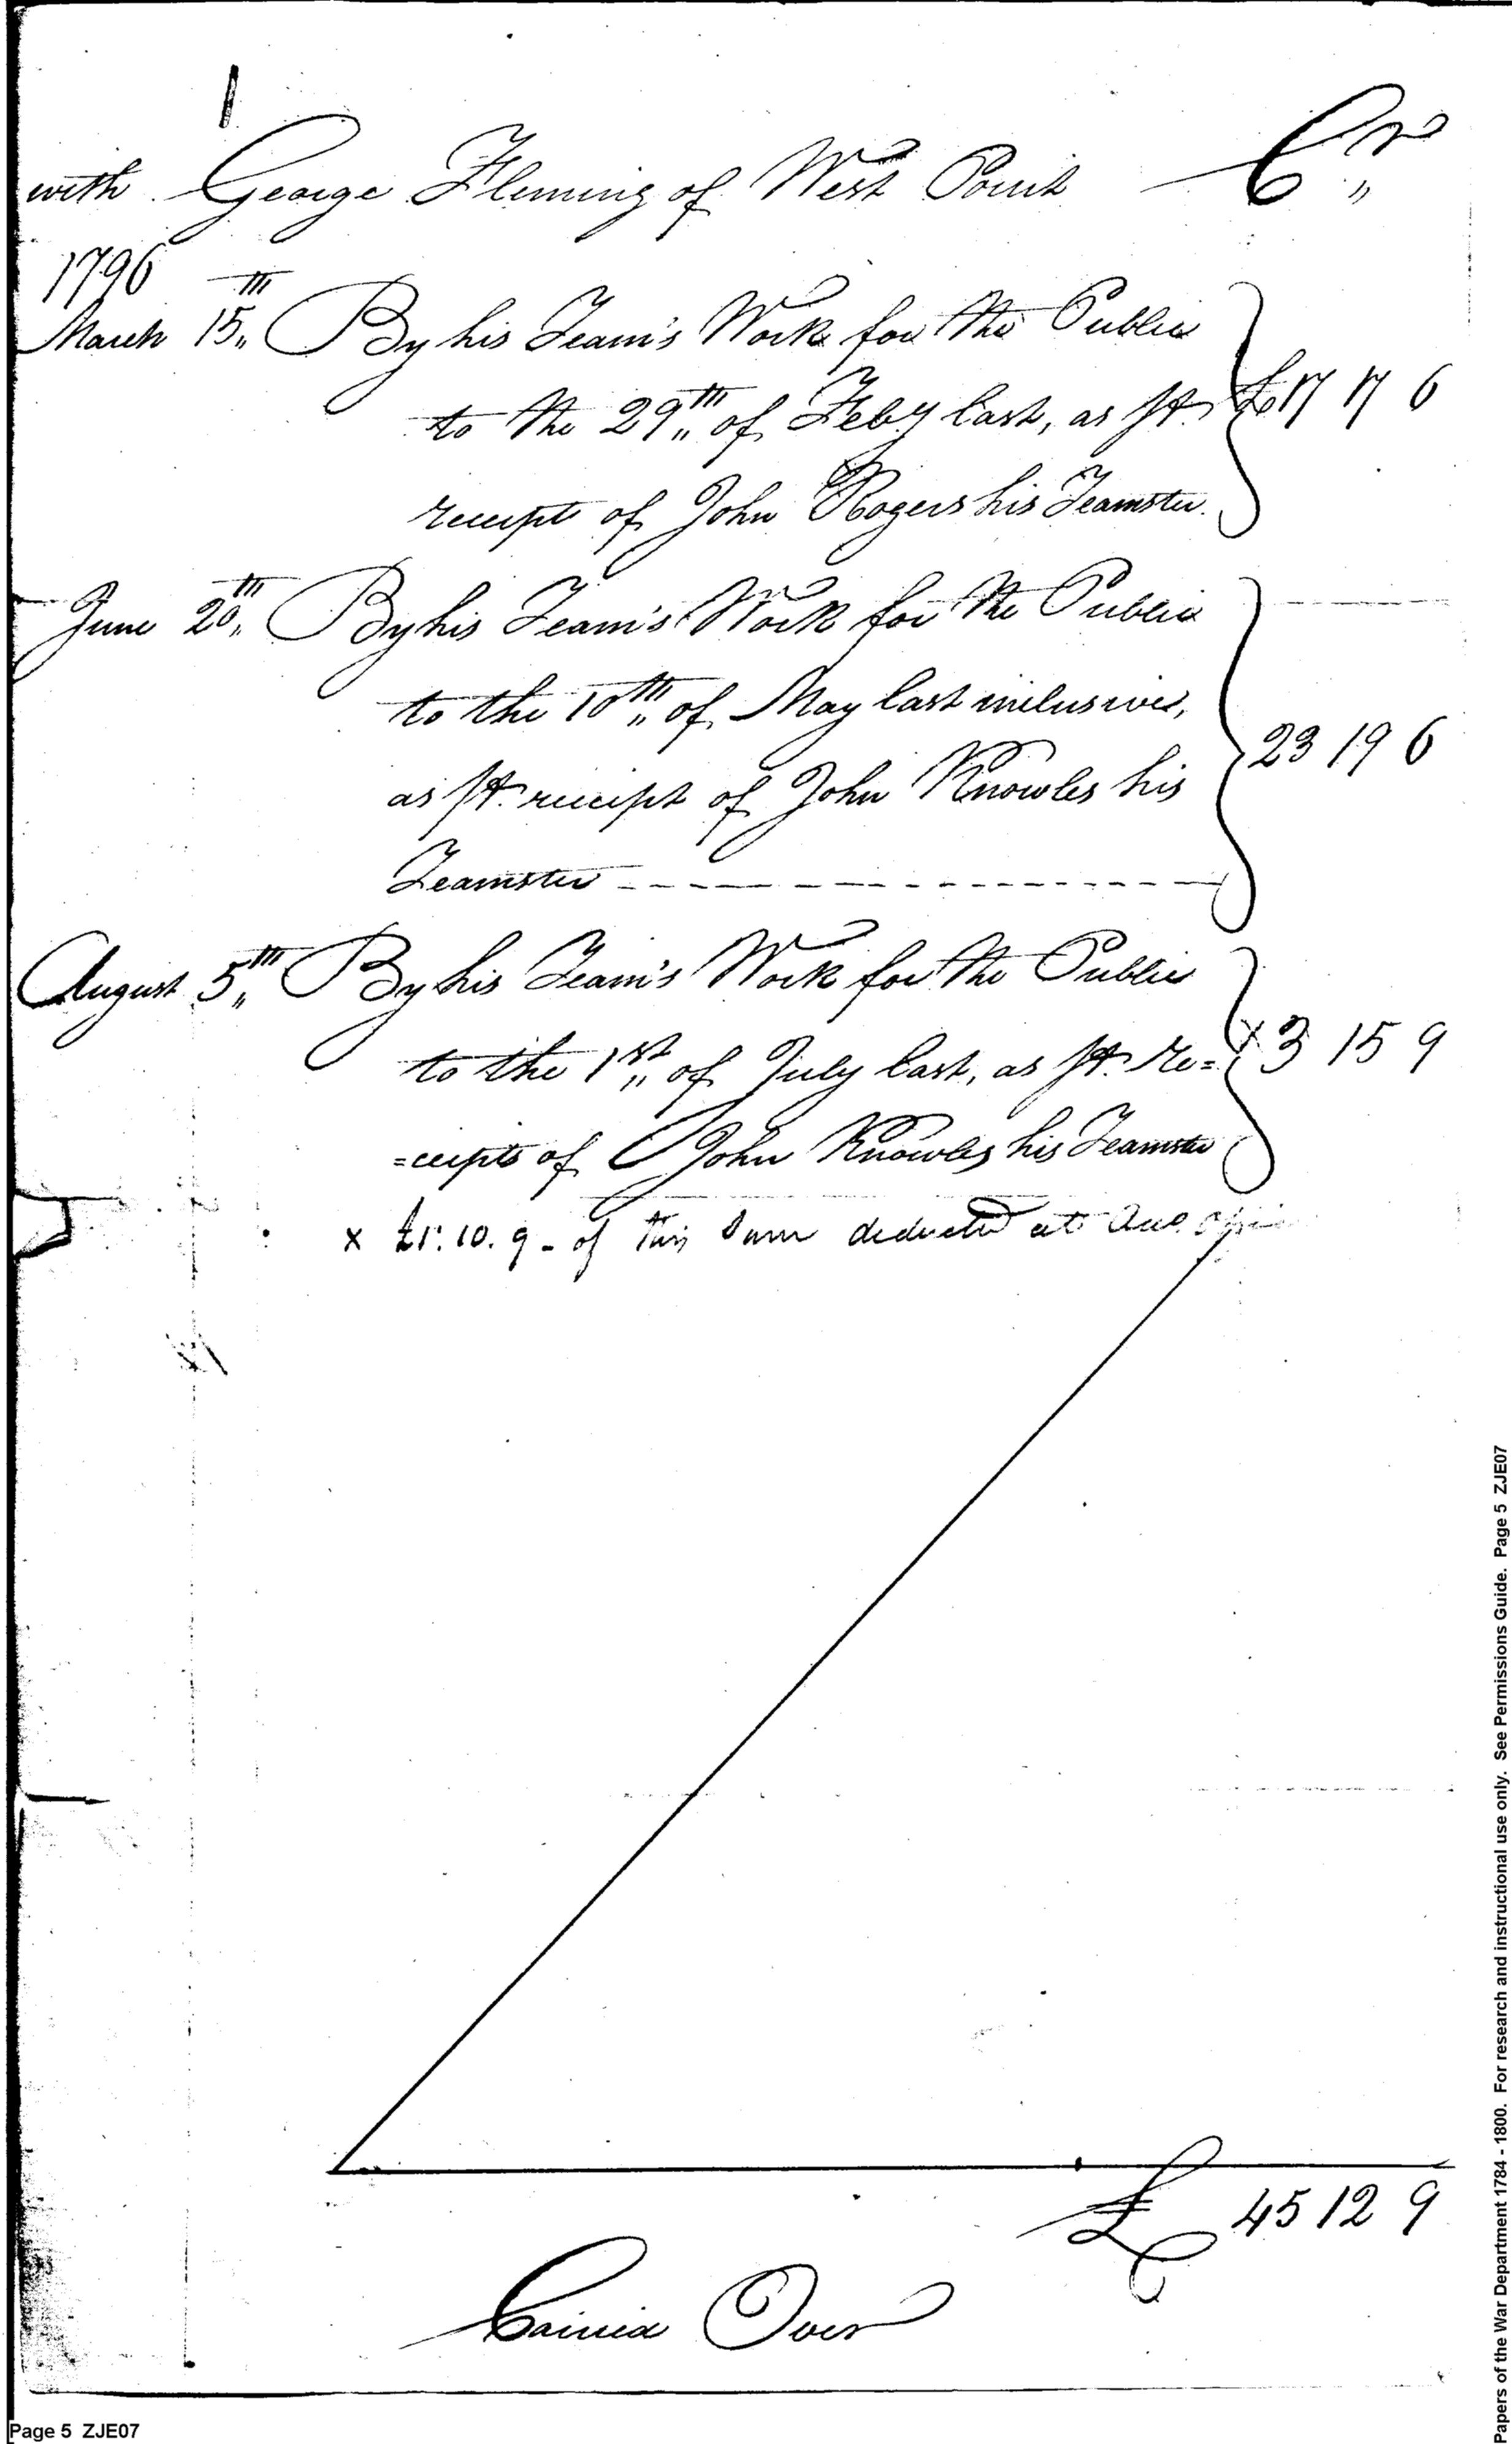 with George Fleming of West Point Cr„
1796
March 15„th By his Team's Work for the Public
to the 29„th of Feby last, as pr. £17 17 6
receipts of John Rogers his Teamster.
June 20„th By his Team's Work for the Public
to the 10„th of May last inclusive,
as pr. receipt of John Knowles his 23 19 6
Teamster
August 5„th By his Team's Work for the Public
to the 1„st of July last, as pr. Re= x 3 15 9
=ceipts of John Knowles his Teamster
x £1. 10. 9 - of this Sum deducted at
£ 45 12 9
Carried Over
Page 5 ZJE07
Papers of the War Department 1784 - 1800. For research and instructional use only. See Permissions Guide. Page 5 ZJE07